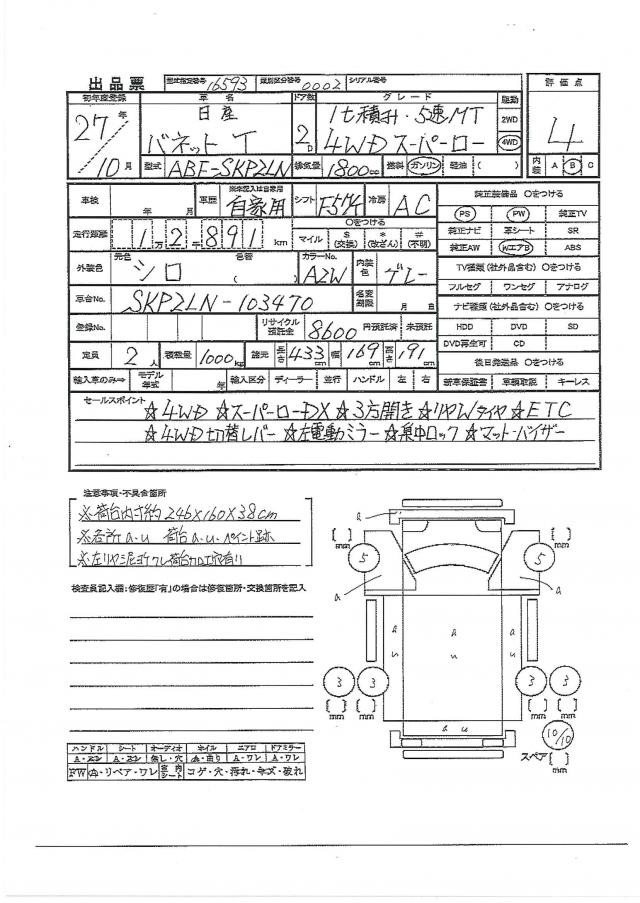 出品票 型式指定番号 16593 類別区分番号 0002 シリアル番号
評価点
4
初年度登録 車名 ドア数 グレード 駆動
27年 日産 2D 1t積み・5速MT 2WD
10月 バネットT 4WDスーパーロー 4WD
型式 ABF-SKP2LN 排気量 1800cc 燃料 ガソリン 軽油 ( )
内装 A B C
車検 年 月 車歴 ※未記入は自家用 自家用 シフト F5MT 冷房 AC
走行距離 1万2千891km ○をつける マイル $(交換) *(改ざん) #(不明)
外装色 元色 シロ 色替 ( ) カラーNo. A2W 内装色 グレー
車台No. SKP2LN-103470 名変期限 月 日
登録No. リサイクル預託金 8600 円預託済 未預託
定員 2人 積載量 1000kg 諸元 長さ 433cm 幅 169cm 高さ 191cm
輸入車のみ⇒ モデル年式 年 輸入区分 ディーラー 並行 ハンドル 左 右
純正装備品 ○をつける
PS PW 純正TV
純正ナビ 革シート SR
純正AW WエアB ABS
TV種類(社外品含む) ○をつける
フルセグ ワンセグ アナログ
ナビ種類(社外品含む) ○をつける
HDD DVD SD
DVD再生可 CD
後日発送品 ○をつける
新車保証書 車輌取説 キーレス
セールスポイント
☆4WD ☆スーパーローDX ☆3方開き ☆リヤWタイヤ ☆ETC
☆4WD切替レバー ☆左電動ミラー ☆集中ロック ☆マット・バイザー
注意事項・不具合箇所
※荷台内寸約246×160×38cm
※各所a.u 荷台a.u.ペイント跡
※左リヤ泥ヨケワレ荷台カロエ跡有り
検査員記入欄:修復歴「有」の場合は修復箇所・交換箇所を記入
ハンドル シート オーディオ ネイル エアロ ドアミラー
A・スレ A・スレ 無し・穴 A・曲り A・ワレ A・ワレ
FW A・リペア・ワレ 室内シート コゲ・穴・汚れ・キズ・破れ
a
[ ] mm [ ] mm
5 5
a a
a a a
u u u
3 3 3 3
[ ] mm [ ] mm [ ] mm [ ] mm
a u
10/10
スペア [ ] mm